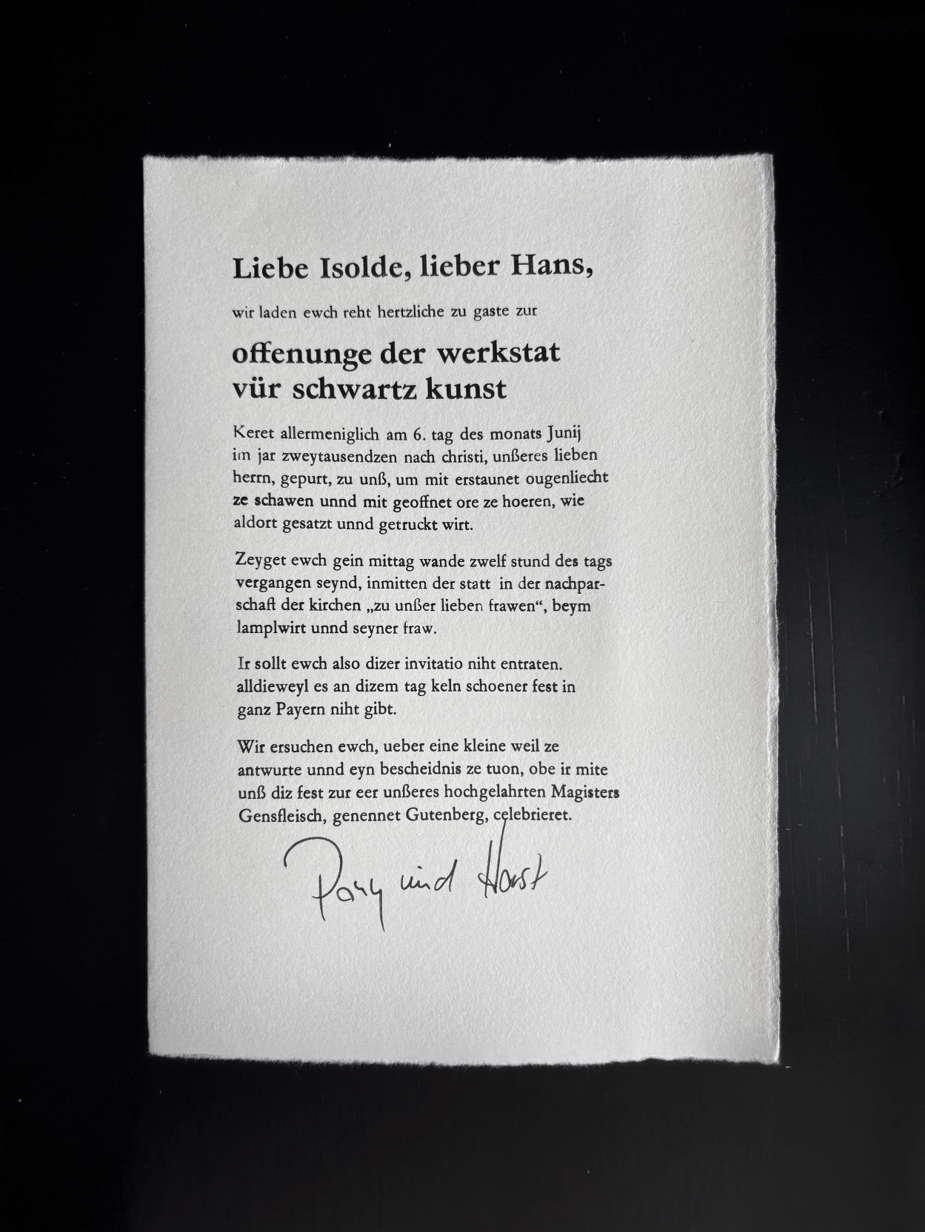 Liebe Isolde, lieber Hans,
wir laden ewch reht hertzliche zu gaste zur
offenunge der werkstat
vür schwartz kunst
Keret allermeniglich am 6. tag des monats Junij
im jar zweytausendzen nach christi, unßeres lieben
herrn, gepurt, zu unß, um mit erstaunet ougenliecht
ze schawen unnd mit geoffnet ore ze hoeren, wie
aldort gesatzt unnd getruckt wirt.
Zeyget ewch gein mittag wande zwelf stund des tags
vergangen seynd, inmitten der statt in der nachpar-
schaft der kirchen „zu unßer lieben frawen“, beym
lamplwirt unnd seyner fraw.
Ir sollt ewch also dizer invitatio niht entraten.
alldieweyl es an dizem tag keln schoener fest in
ganz Payern niht gibt.
Wir ersuchen ewch, ueber eine kleine weil ze
antwurte unnd eyn bescheidnis ze tuon, obe ir mite
unß diz fest zur eer unßeres hochgelahrten Magisters
Gensfleisch, genennet Gutenberg, celebrieret.
und Horst